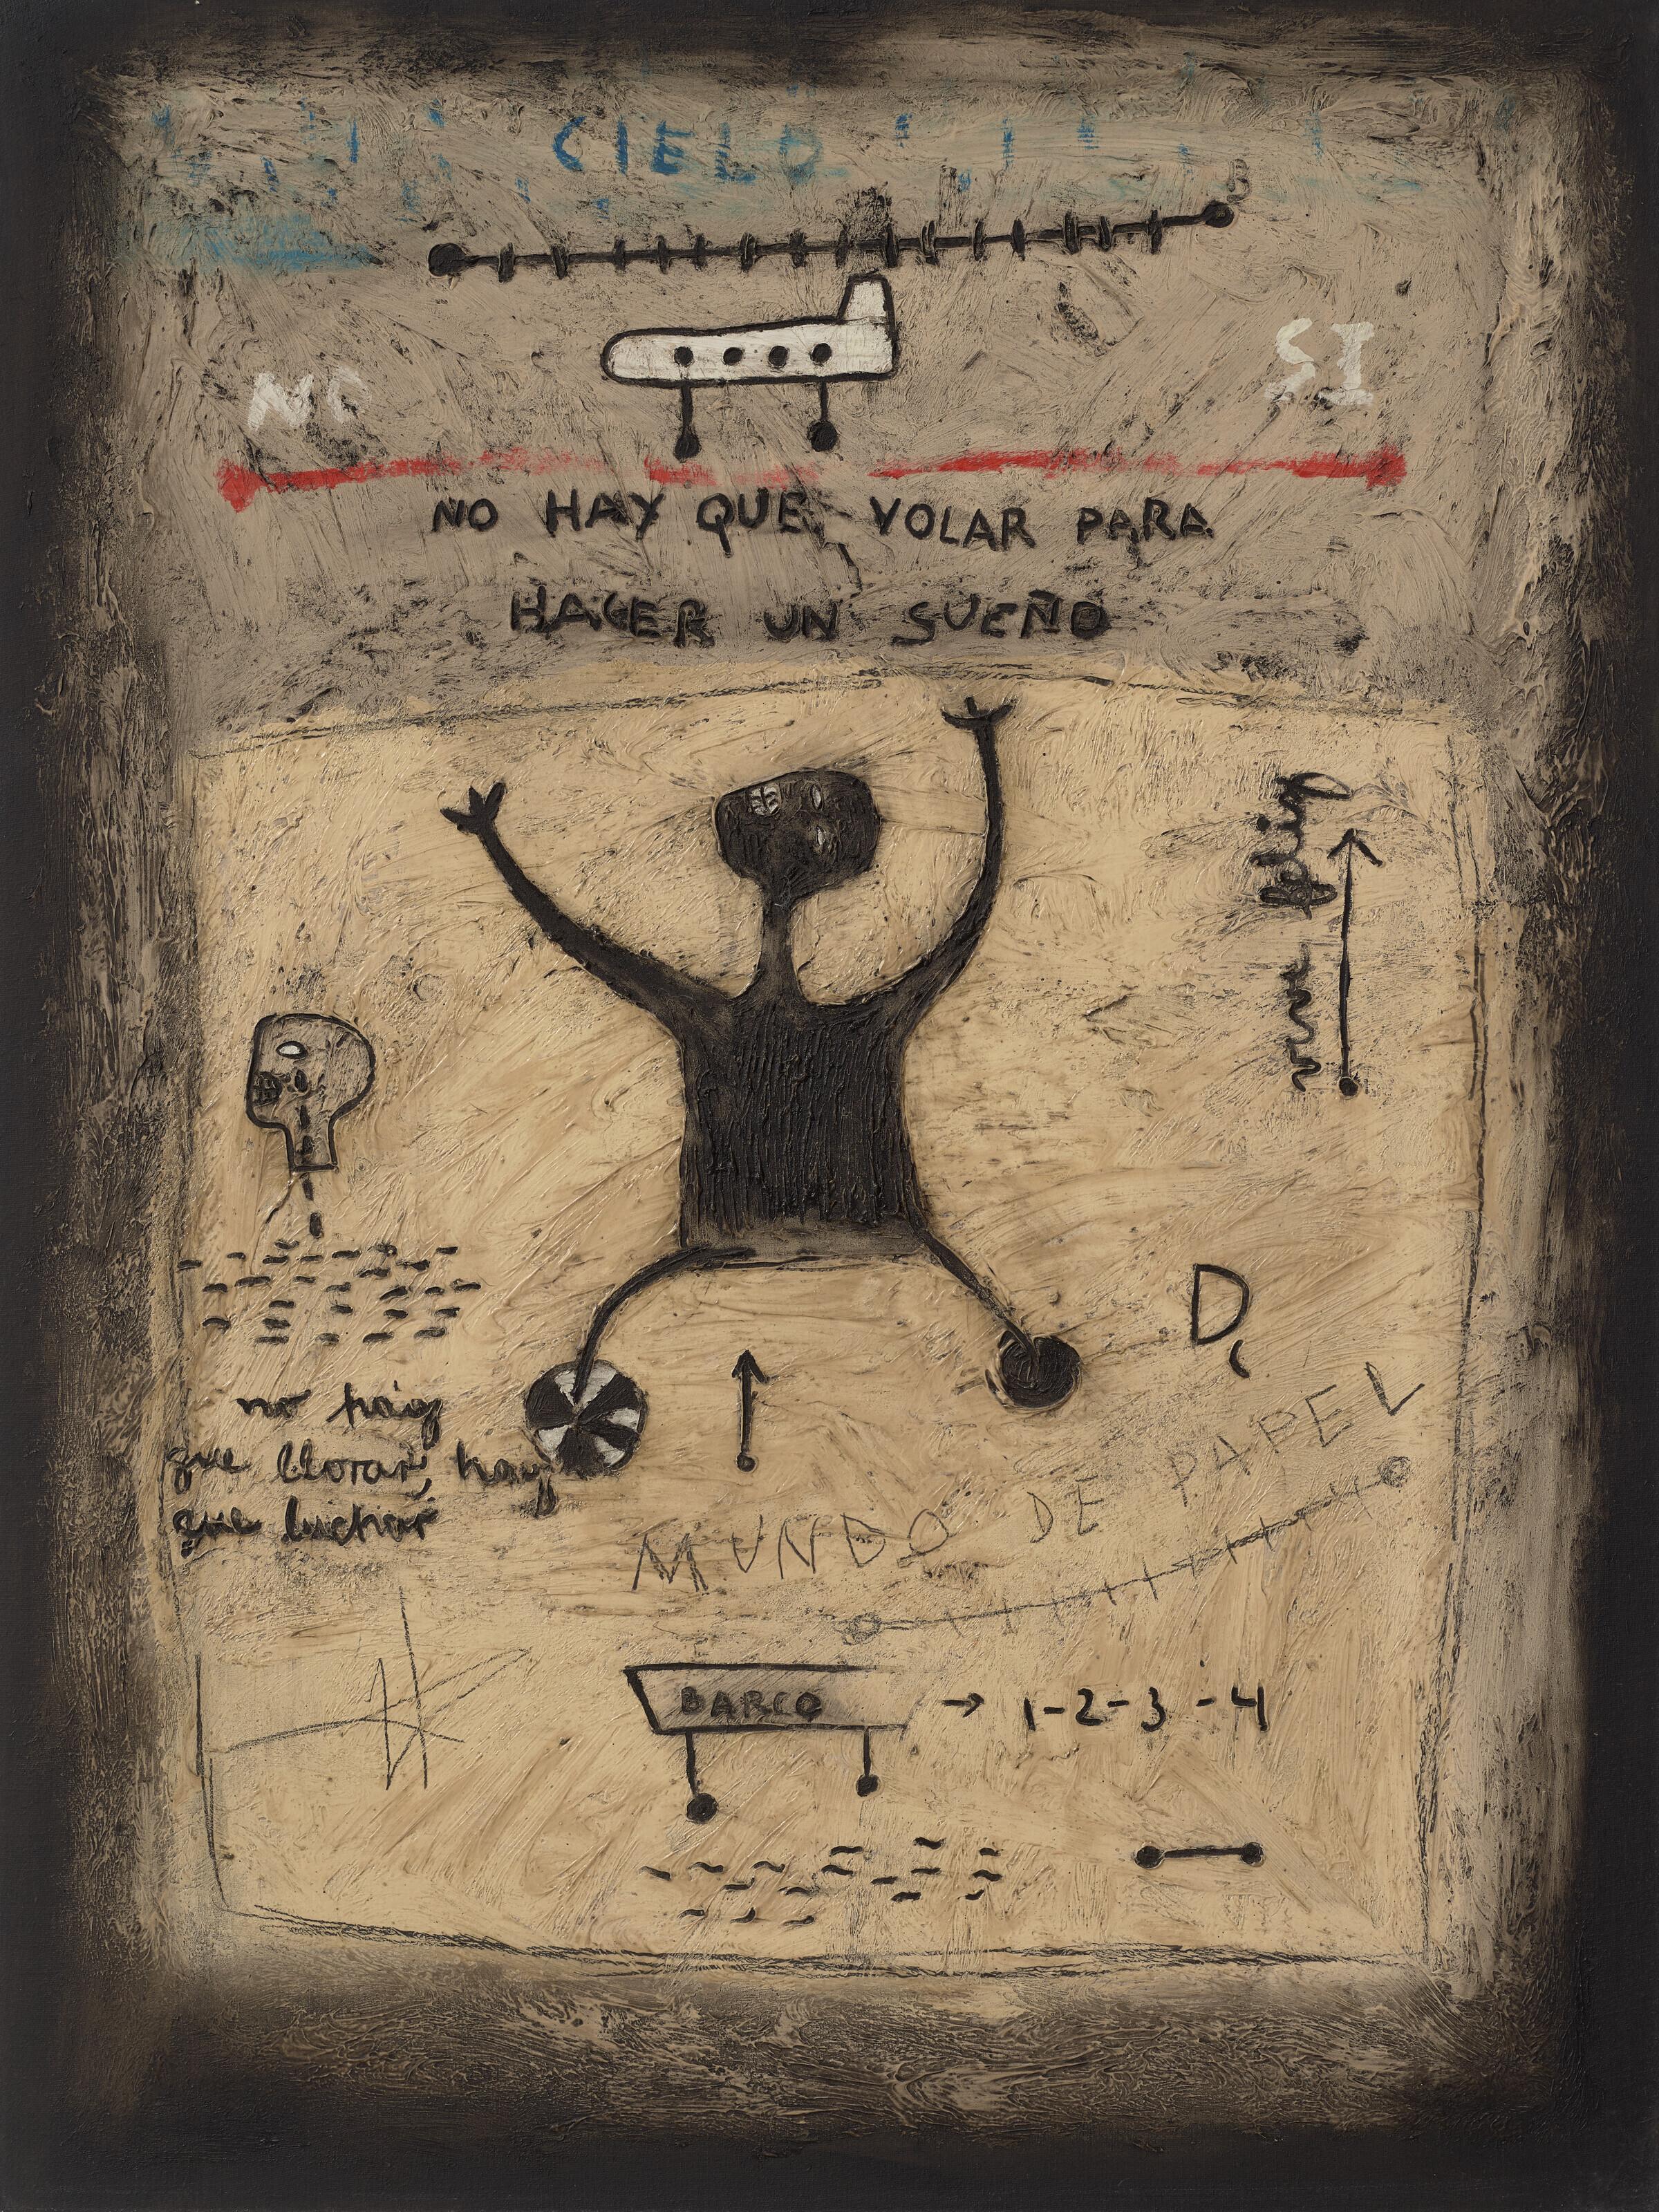 CIELO
B
NO
SI
NO HAY QUE VOLAR PARA
HACER UN SUEÑO
D
no hay
que llorar, hay
que luchar
MUNDO DE PAPEL
BARCO → 1-2-3-4